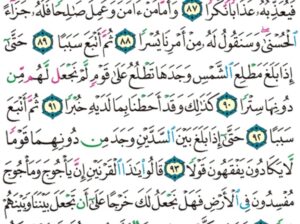 فَيُعَذِّبُهُۥ عَذَابًا نُّكْرًا ٨٧ وَأَمَّا مَنْ ءَامَنَ وَعَمِلَ صَٰلِحًا فَلَهُۥ جَزَآءً
ٱلْحُسْنَىٰ وَسَنَقُولُ لَهُۥ مِنْ أَمْرِنَا يُسْرًا ٨٨ ثُمَّ أَتْبَعَ سَبَبًا ٨٩ حَتَّىٰٓ
إِذَا بَلَغَ مَطْلِعَ ٱلشَّمْسِ وَجَدَهَا تَطْلُعُ عَلَىٰ قَوْمٍ لَّمْ نَجْعَل لَّهُم مِّن
دُونِهَا سِتْرًا ٩٠ كَذَٰلِكَ وَقَدْ أَحَطْنَا بِمَا لَدَيْهِ خُبْرًا ٩١ ثُمَّ أَتْبَعَ
سَبَبًا ٩٢ حَتَّىٰٓ إِذَا بَلَغَ بَيْنَ ٱلسَّدَّيْنِ وَجَدَ مِن دُونِهِمَا قَوْمًا
لَّا يَكَادُونَ يَفْقَهُونَ قَوْلًا ٩٣ قَالُوا۟ يَٰذَا ٱلْقَرْنَيْنِ إِنَّ يَأْجُوجَ وَمَأْجُوجَ
مُفْسِدُونَ فِى ٱلْأَرْضِ فَهَلْ نَجْعَلُ لَكَ خَرْجًا عَلَىٰٓ أَن تَجْعَلَ بَيْنَنَا وَبَيْنَهُمْ